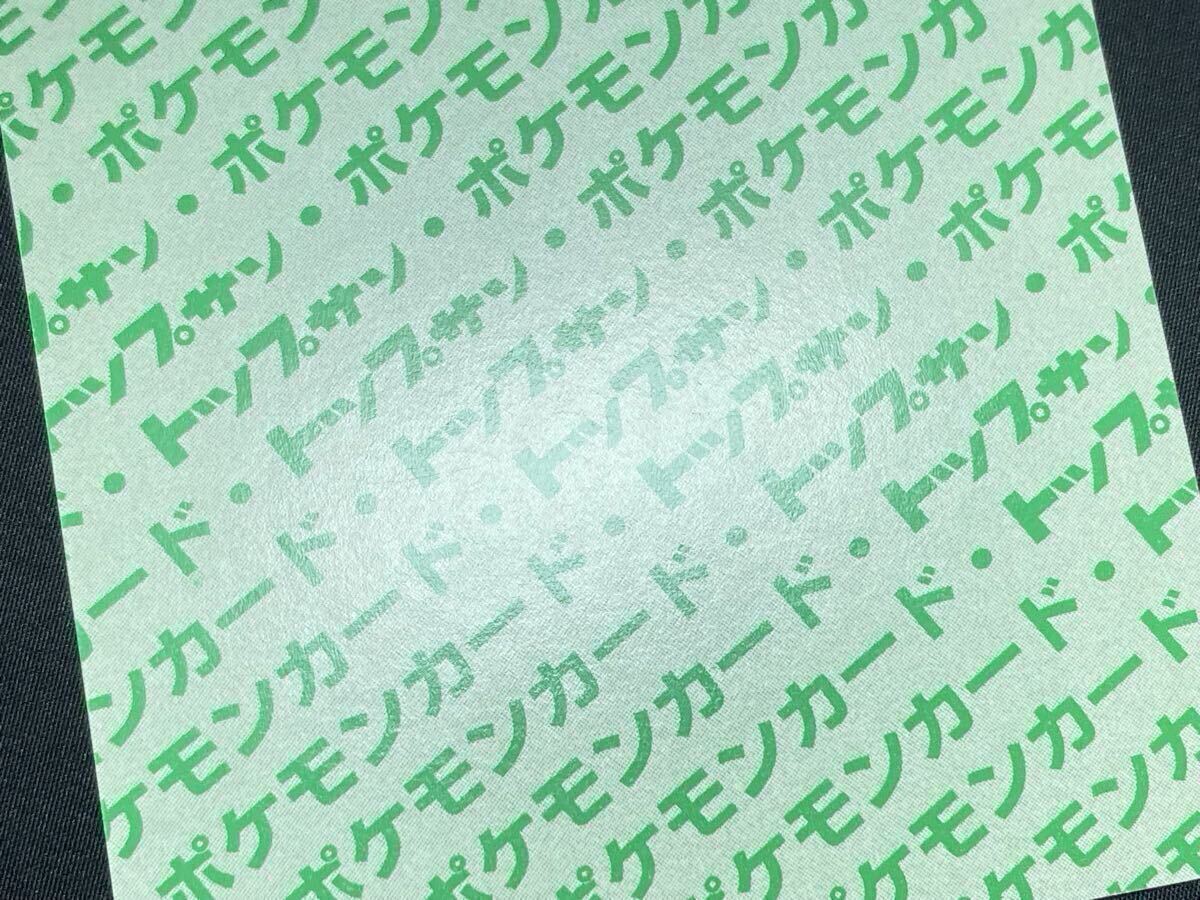 ポケモン
・ポケモン
プサン・ポケモン
ップサン・ポケモン
・トップサン・ポケモン
ード・トップサン・ポケモンカ
ンカード・トップサン・ポケモンカ
ケモンカード・トップサン・ポケモンカ
ポケモンカード・トップサン・ポケモ
ポケモンカード・トップサン・ポ
ポケモンカード・トップサン・
ポケモンカード・トップ
ポケモンカード・ト
ポケモンカード
ケモンカ